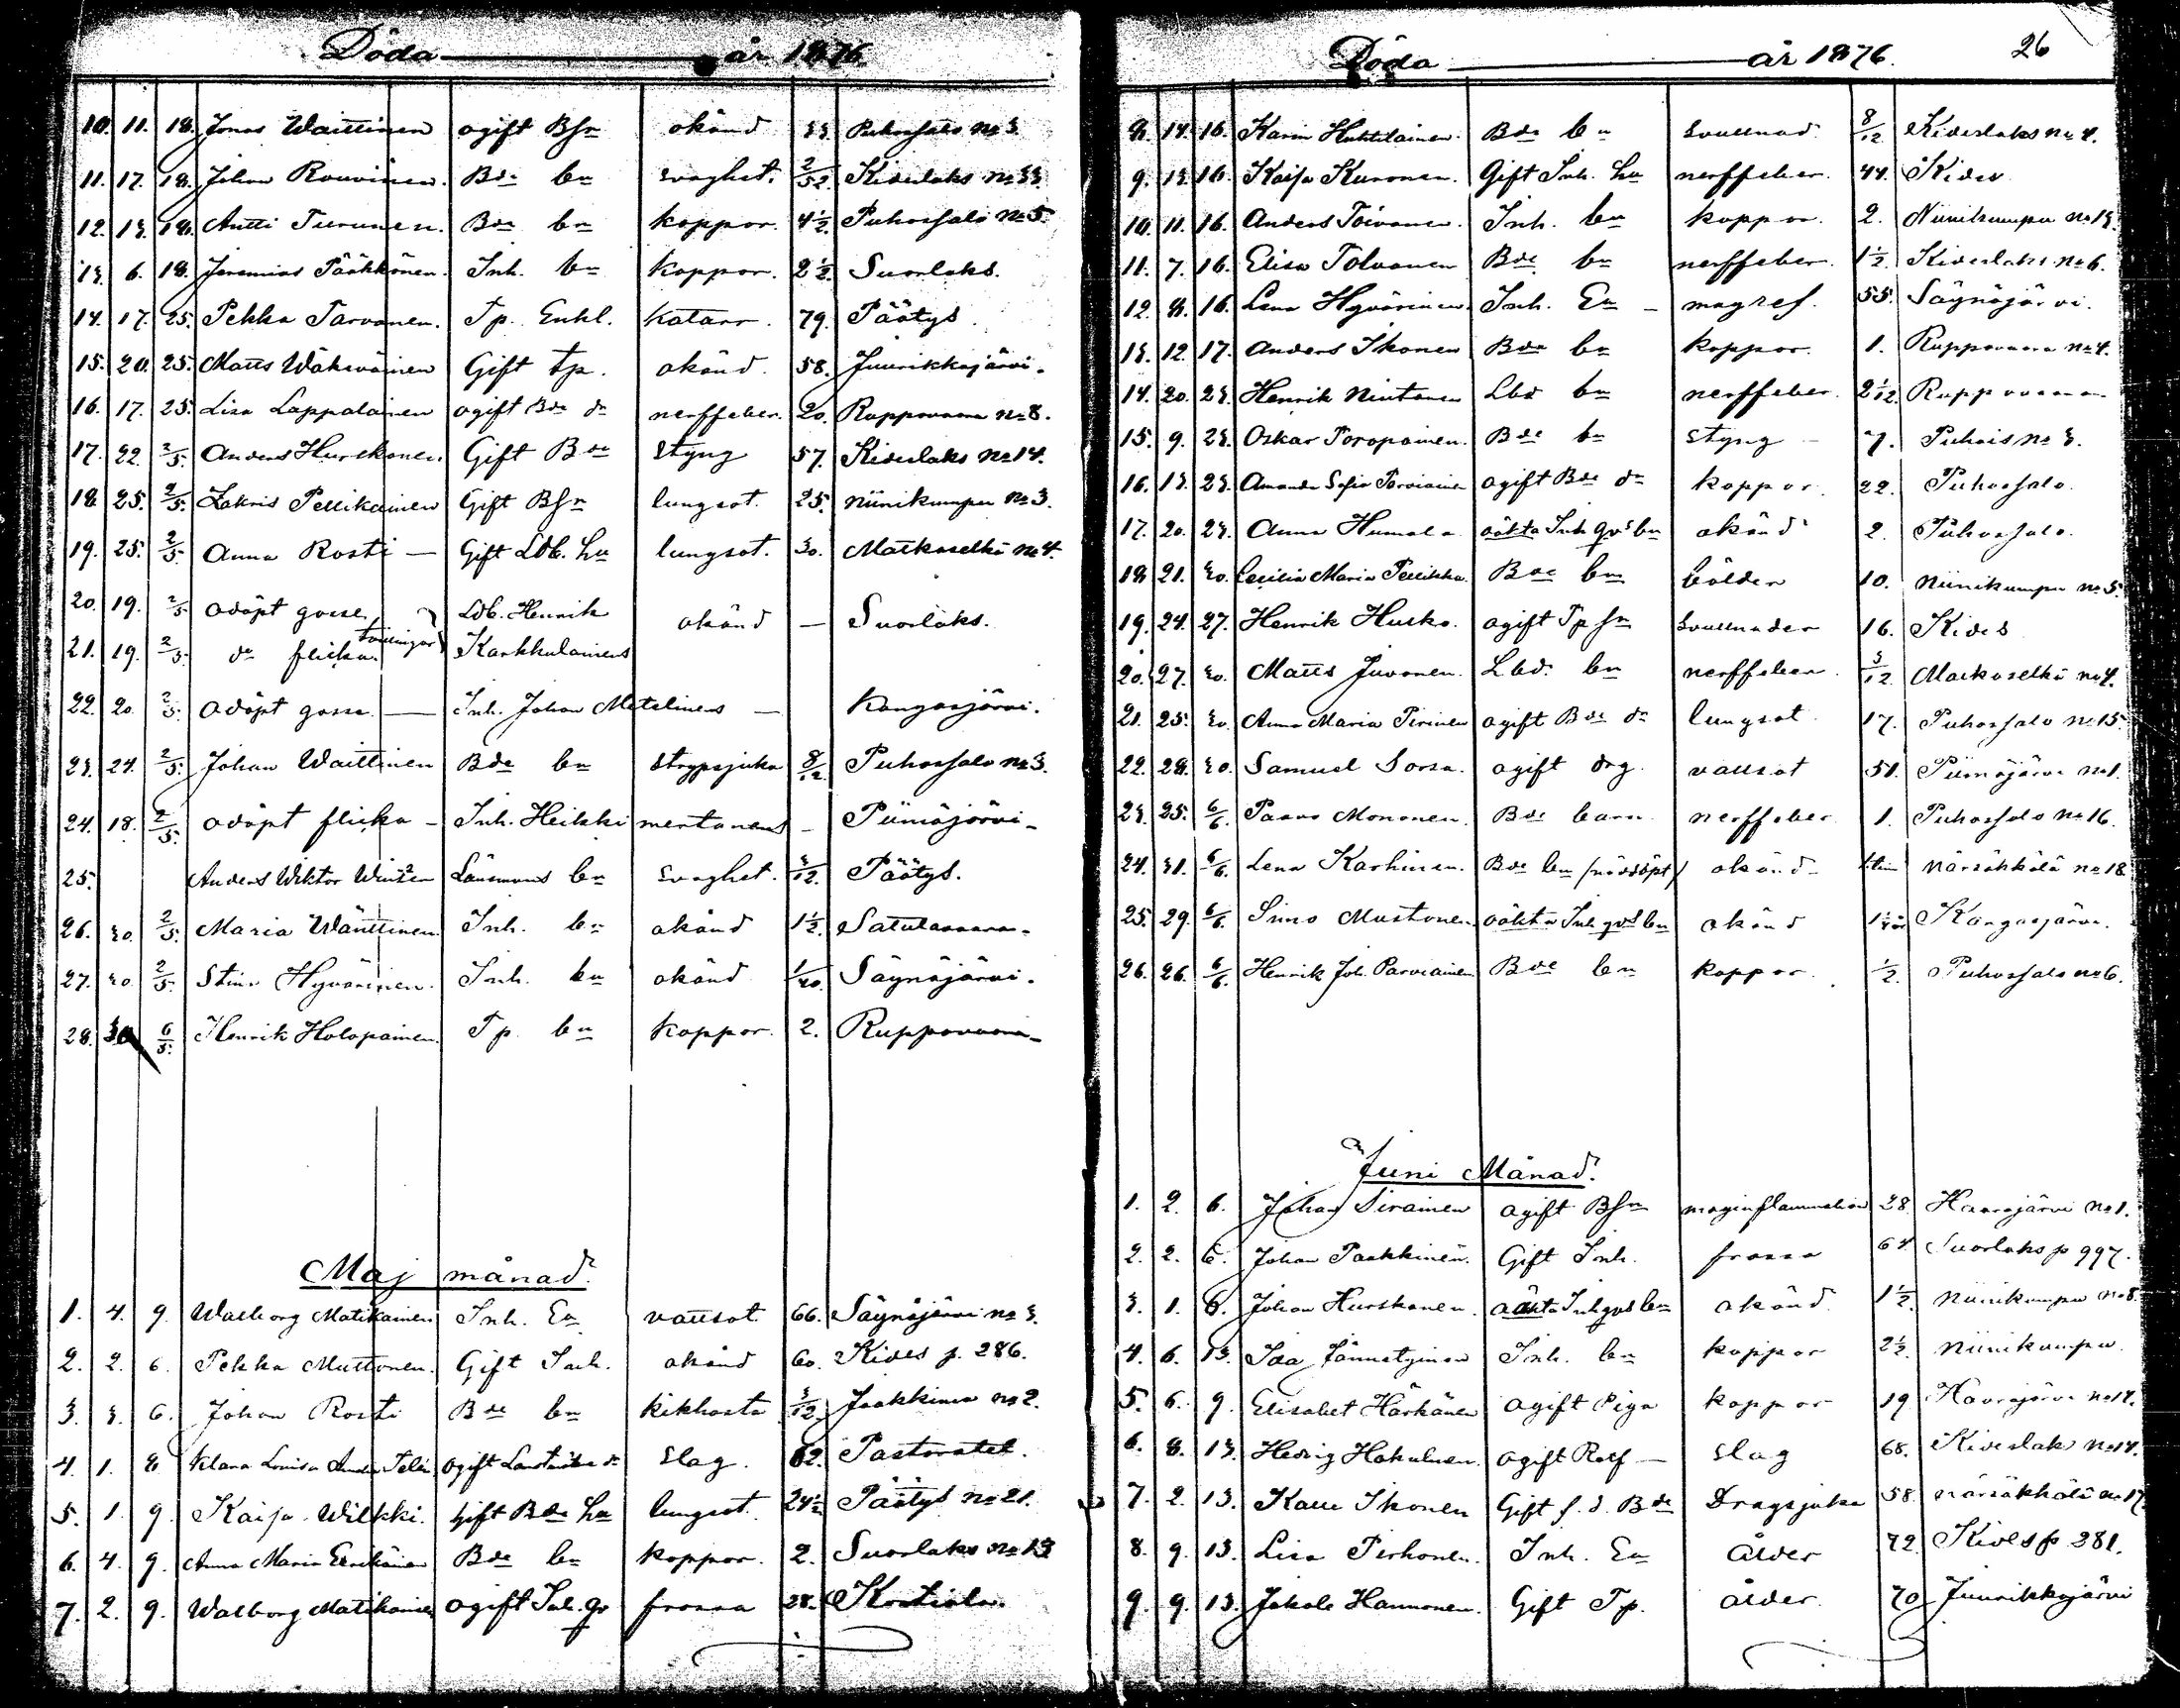 Döda år 1876.
10. 11. 18. Jonas Waittinen ogift Bsn okänd 33. Puhossalo No 3.
11. 17. 18. Johan Rouvinen. Bde bn svaghet. 2/52 Kideslaks No 33.
12. 13. 18. Antti Turunen. Bde bn koppor. 4 1/2 Puhossalo No 5.
13. 6. 18. Jeremias Pääkkönen. Inh. bn koppor. 2 1/2. Suorlaks.
14. 17. 25. Pekka Tarvanen. Tp. Enkl. katarr. 79. Päätys.
15. 20. 25. Matts Wäkeväinen Gift tp. okänd. 58. Juurikkajärvi.
16. 17. 25. Lisa Lappalainen ogift Bde dr nerffeber. 20. Ruppovaara No 8.
17. 22. 2/5. Anders Hurskanen. Gift Bde styng 57. Kideslaks No 14.
18. 25. 2/5. Zakris Pellikainen Gift Bsn lungsot. 25. Niinikumpu No 3.
19. 25. 2/5. Anna Rosti — Gift Ldb. hu lungsot. 30. Matkaselkä No 4.
20. 19. 2/5. odöpt gosse, Ldb. Henrik okänd — Suorlaks.
21. 19. 2/5. do flicka. tvillingar Karkkulainens
22. 20. 2/5. odöpt gosse — Inh. Johan Metelinens — Kangasjärvi.
23. 24. 2/5. Johan Waittinen Bde bn strypsjuka 8/12. Puhossalo No 3.
24. 18. 2/5. odöpt flicka — Inh. Heikki mentanens — Piimäjärvi.
25. Anders Wiktor Länsmans bn svaghet. 3/12. Päätys.
26. 30. 2/5. Maria Wänttinen. Inh. bn okänd 1 1/2. Satulavaara.
27. 30. 2/5. Stina Hyvärinen. Inh. bn okänd Säynäjärvi.
28. 30 6/5. Henrik Holopainen. Tp. bn koppor. 2. Ruppovaara
Maj månad.
1. 4. 9. Walborg Matikainen Inh. Ea vattsot. 66. Säynäjärvi No 3.
2. 2. 6. Pekka Muttonen. Gift Inh. okänd 60. Kides p. 286.
3. 3. 6. Johan Rosti Bde bn kikhosta 3/12. Jaakkima No 2.
4. 1. 8 Klara Lovisa ogift slag. 62. Pastoratet.
5. 1. 9. Kaisa Wilkki. Gift Bde hu lungsot. 24 1/2 Päätys No 21.
6. 4. 9. Anna Maria Bde bn koppor. 2. Suorlaks No 13
7. 2. 9. Walborg Matikainen ogift Inh. qv frossa 28.
Döda år 1876. 26
8. 14. 16. Karin Huhtilainen. Bde bn svullnad. 8/12 Kideslaks No 4.
9. 13. 16. Kaisa Kuronen. Gift Inh. hu nerffeber. 44. Kides
10. 11. 16. Anders Toivanen. Inh. bn koppor. 2. Niinikumpu No 13.
11. 7. 16. Elisa Tolvanen Bde bn nerffeber. 1 1/2. Kideslaks No 6.
12. 8. 16. Lena Hyvärinen. Inh. Ea — magref. 55. Säynäjärvi.
13. 12. 17. Anders Ikonen Bde bn koppor. 1. Ruppovaara No 4.
14. 20. 23. Henrik Niutanen Lbd bn nerffeber. 2 1/2. Ruppovaara
15. 9. 23. Oskar Poropainen. Bde bn styng — 7. Puhois No 3.
16. 13. 23. Amanda Sofia Parviainen ogift Bde dr koppor. 22. Puhossalo.
17. 20. 23. Anna Humala oäkta Inh qvs bn okänd 2. Puhossalo.
18 21. 30. Cecilia Maria Pellikka. Bde bn bölder 10. Niinikumpu No 5.
19. 24. 27. Henrik Husko. ogift Tp sn svullnader 16. Kides
20. 27. 30. Matts Juvonen. Lbd. bn nerffeber. 3/12 Matkaselkä No 4.
21. 25. 30. Anna Maria Pirinen ogift Bde dr lungsot. 17. Puhossalo No 15.
22. 28. 30. Samuel Sorsa. ogift drg. vattsot 51. Piimäjärvi No 1.
23. 25. 6/6. Paavo Mononen. Bde barn nerffeber 1. Puhossalo No 16.
24. 31. 6/6. Lena Karhinen. Bde bn (nöddöpt) okänd Närsäkkälä No 18
25. 29. 6/6. Simo Mustonen. oäkta Inh qvs bn okänd Kangasjärvi.
26. 26. 6/6. Henrik Joh. Parviainen Bde bn koppor. 1/2. Puhossalo No 6.
Juni Månad.
1. 2. 6. Johan Sirainen ogift Bsn maginflammation 28. Haarajärvi No 1.
2. 2. 6. Johan Paakkinen. Gift Inh. frossa 64. Suorlaks p 997.
3. 1. 6. Johan Hurskanen. oäkta Inh qvs bn okänd. 1 1/2. Niinikumpu No 8.
4. 6. 13. Ida Jännetyinen Inh. bn koppor 2 1/2. Niinikumpu.
5. 6. 9. Elisabet Härkänen ogift Piga koppor 19 Haarajärvi No 14.
6. 8. 13. Hedvig Hakulinen. ogift — slag 68. Kideslaks No 14.
7. 2. 13. Kalle Ikonen Gift f. d. Bde Dragsjuka 58. Närsäkkälä No 17.
8. 9. 13. Lisa Pirhonen. Inh. Ea Ålder 72. Kides p. 281.
9. 9. 13. Jakob Hannonen. Gift Tp. ålder. 70. Juurikkajärvi